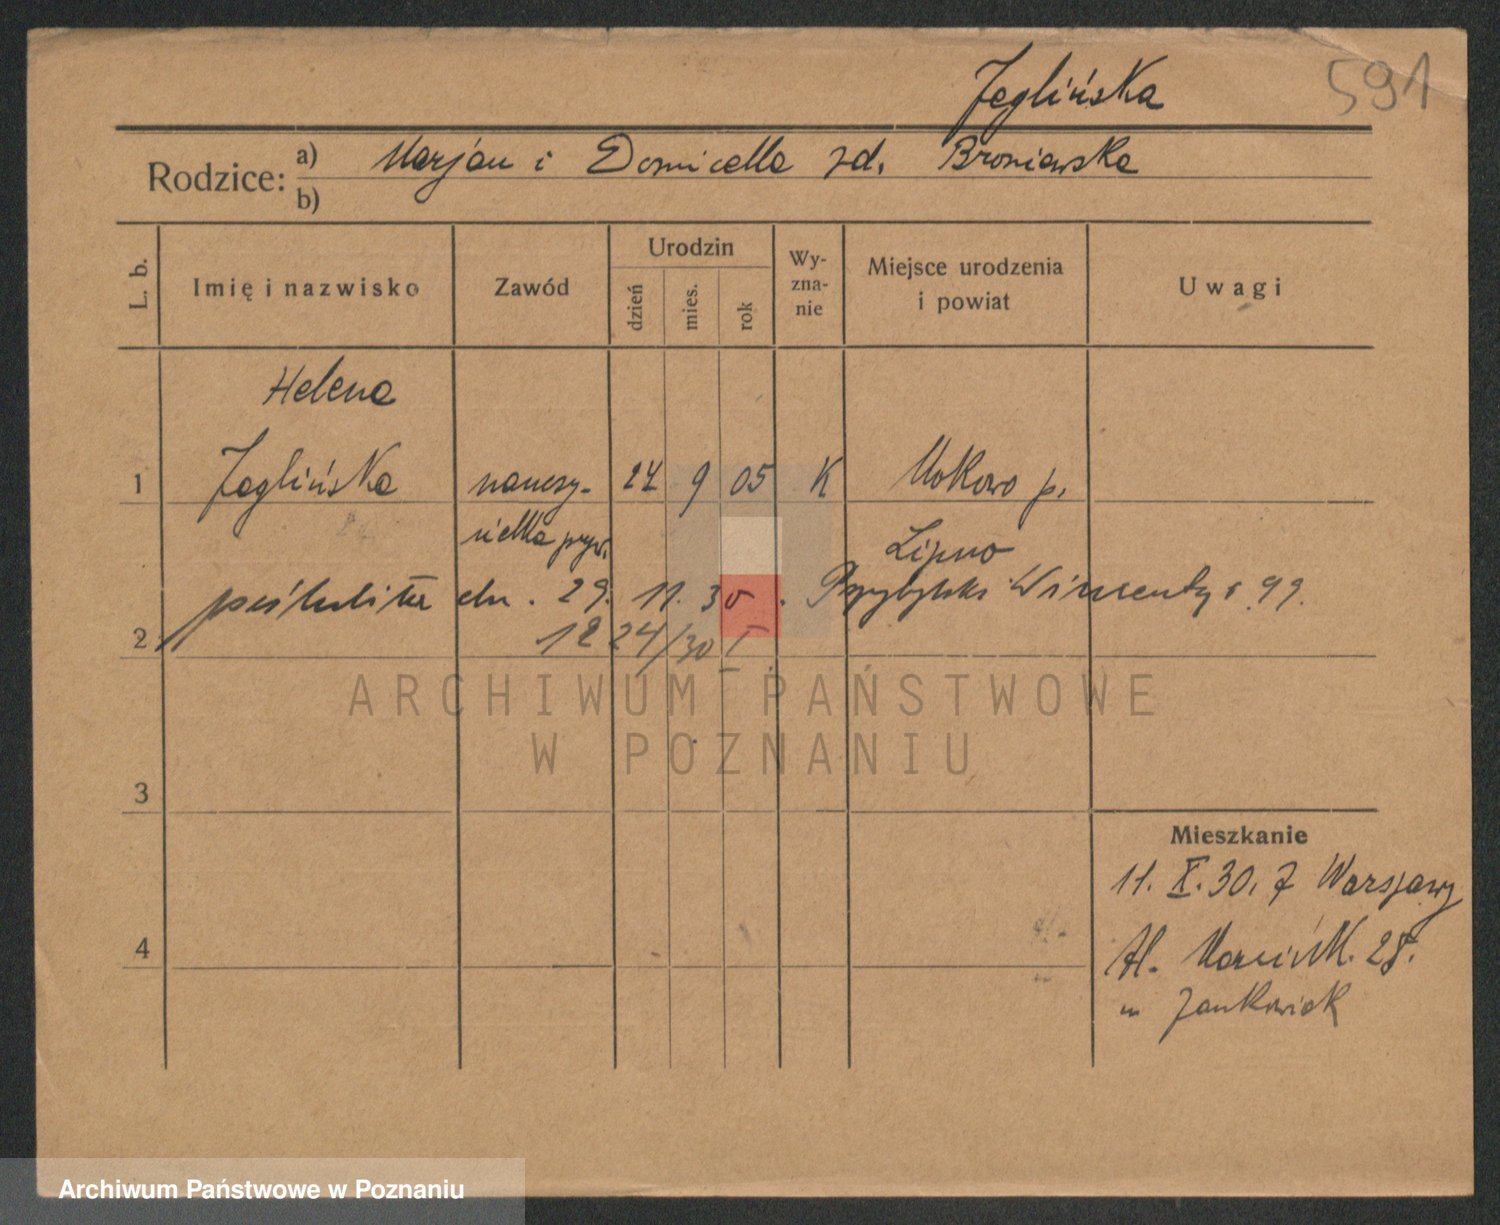 Jeglińska
591
Rodzice: a) Marjan i Domicella zd. Broniewska
b)
L. b.
Imię i nazwisko
Zawód
Urodzin
dzień
mies.
rok
Wy-
zna-
nie
Miejsce urodzenia
i powiat
Uwagi
Helena
1 Jeglińska nauczy- 24 9 05 K Mokowo p.
cielka pryw. Lipno
poślubiła dn. 29. 11. 30. Przybylski Wincenty
2 12 24/30
3
4
Mieszkanie
11. X. 30. z Warszawy
28.
u Jankowiak
ARCHIWUM PAŃSTWOWE
W POZNANIU
Archiwum Państwowe w Poznaniu